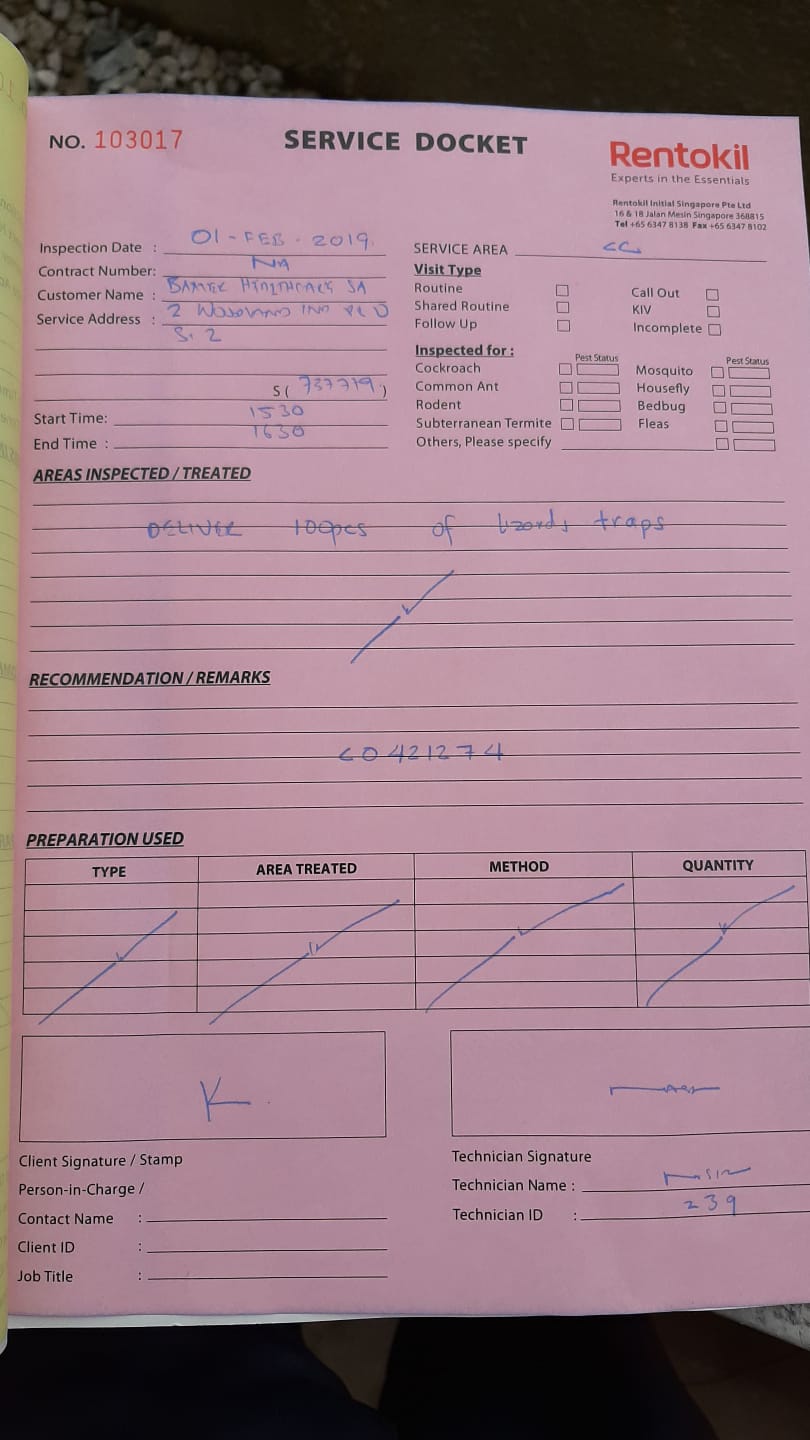 NO. 103017
SERVICE DOCKET
Rentokil
Experts in the Essentials
Rentokil Initial Singapore Pte Ltd
16 & 18 Jalan Mesin Singapore 368815
Tel +65 6347 8138 Fax +65 6347 8102
Inspection Date : 01-FEB-2019
Contract Number: NA
Customer Name : HEALTHCARE SA
Service Address : 2 WOODLANDS IND PK D
St. 2
S( 737719 )
Start Time: 1530
End Time : 1630
SERVICE AREA CC
Visit Type
Routine
Call Out
Shared Routine
KIV
Follow Up
Incomplete
Inspected for :
Pest Status
Pest Status
Cockroach
Mosquito
Common Ant
Housefly
Rodent
Bedbug
Subterranean Termite
Fleas
Others, Please specify
AREAS INSPECTED / TREATED
DELIVER 100pcs of lizards traps
RECOMMENDATION / REMARKS
CO421274
PREPARATION USED
TYPE AREA TREATED METHOD QUANTITY
Client Signature / Stamp
Person-in-Charge /
Contact Name :
Client ID :
Job Title :
Technician Signature
Technician Name :
Technician ID : 239